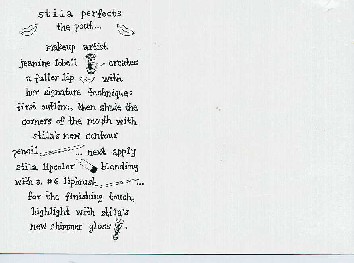 stila perfects
the pout...
makeup artist
jeanine lobell creates
a fuller lip with
her signature technique:
first outline, then shade the
corners of the mouth with
stila's new contour
pencil....... next apply
stila lipcolor blending
with a #6 lipbrush.......
for the finishing touch,
highlight with stila's
new shimmer gloss.